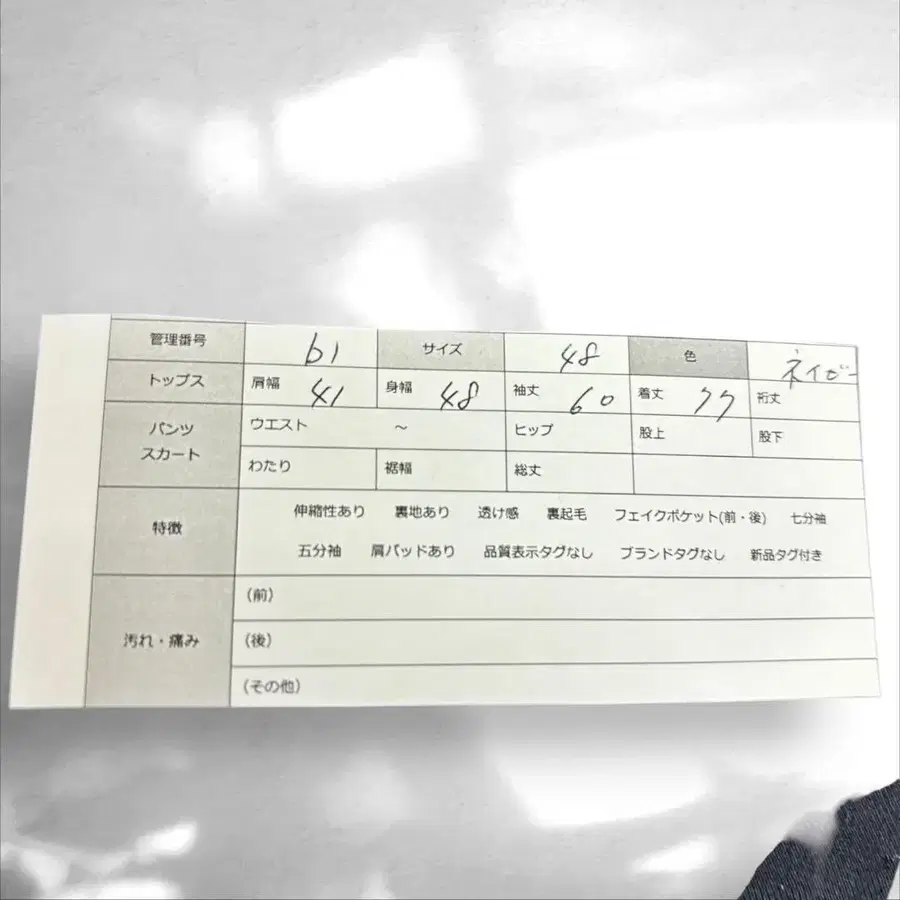 管理番号 61 サイズ 48 色 ネイビー
トップス 肩幅 41 身幅 48 袖丈 60 着丈 77 裄丈
パンツ スカート ウエスト ～ ヒップ 股上 股下
わたり 裾幅 総丈
特徴 伸縮性あり 裏地あり 透け感 裏起毛 フェイクポケット(前・後) 七分袖
五分袖 肩パッドあり 品質表示タグなし ブランドタグなし 新品タグ付き
汚れ・痛み (前)
(後)
(その他)